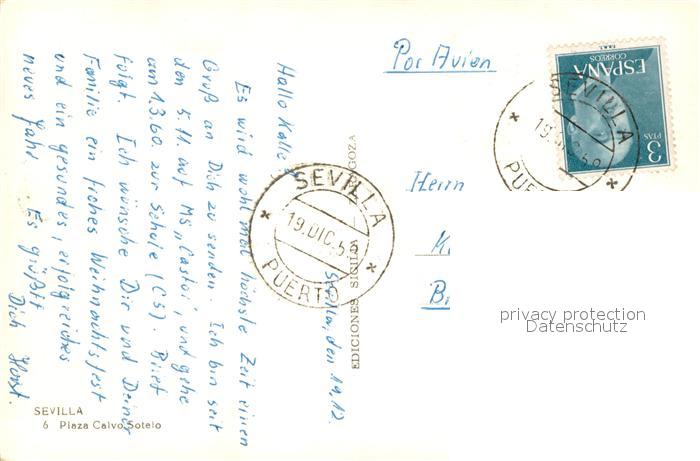 Por Avion
ESPAÑA
CORREOS
3
PTAS
SEVILLA
19.DIC.59
PUERTO
Herrn
K.
B.
privacy protection
Datenschutz
Sevilla, den 19.12.
Hallo Kalle!
Es wird wohl mal höchste Zeit einen
Gruß an Dich zu senden. Ich bin seit
den 5.11. auf MS „Castor", und gehe
am 1.3.60. zur Schule (C5). Brief
folgt. Ich wünsche Dir und Deiner
Familie ein frohes Weihnachtsfest
und ein gesundes, erfolgreiches
neues Jahr. Es grüßt
Dich Horst.
SEVILLA
19.DIC.59
PUERTO
EDICIONES SICILIA
GOZA
SEVILLA
6 Plaza Calvo Sotelo